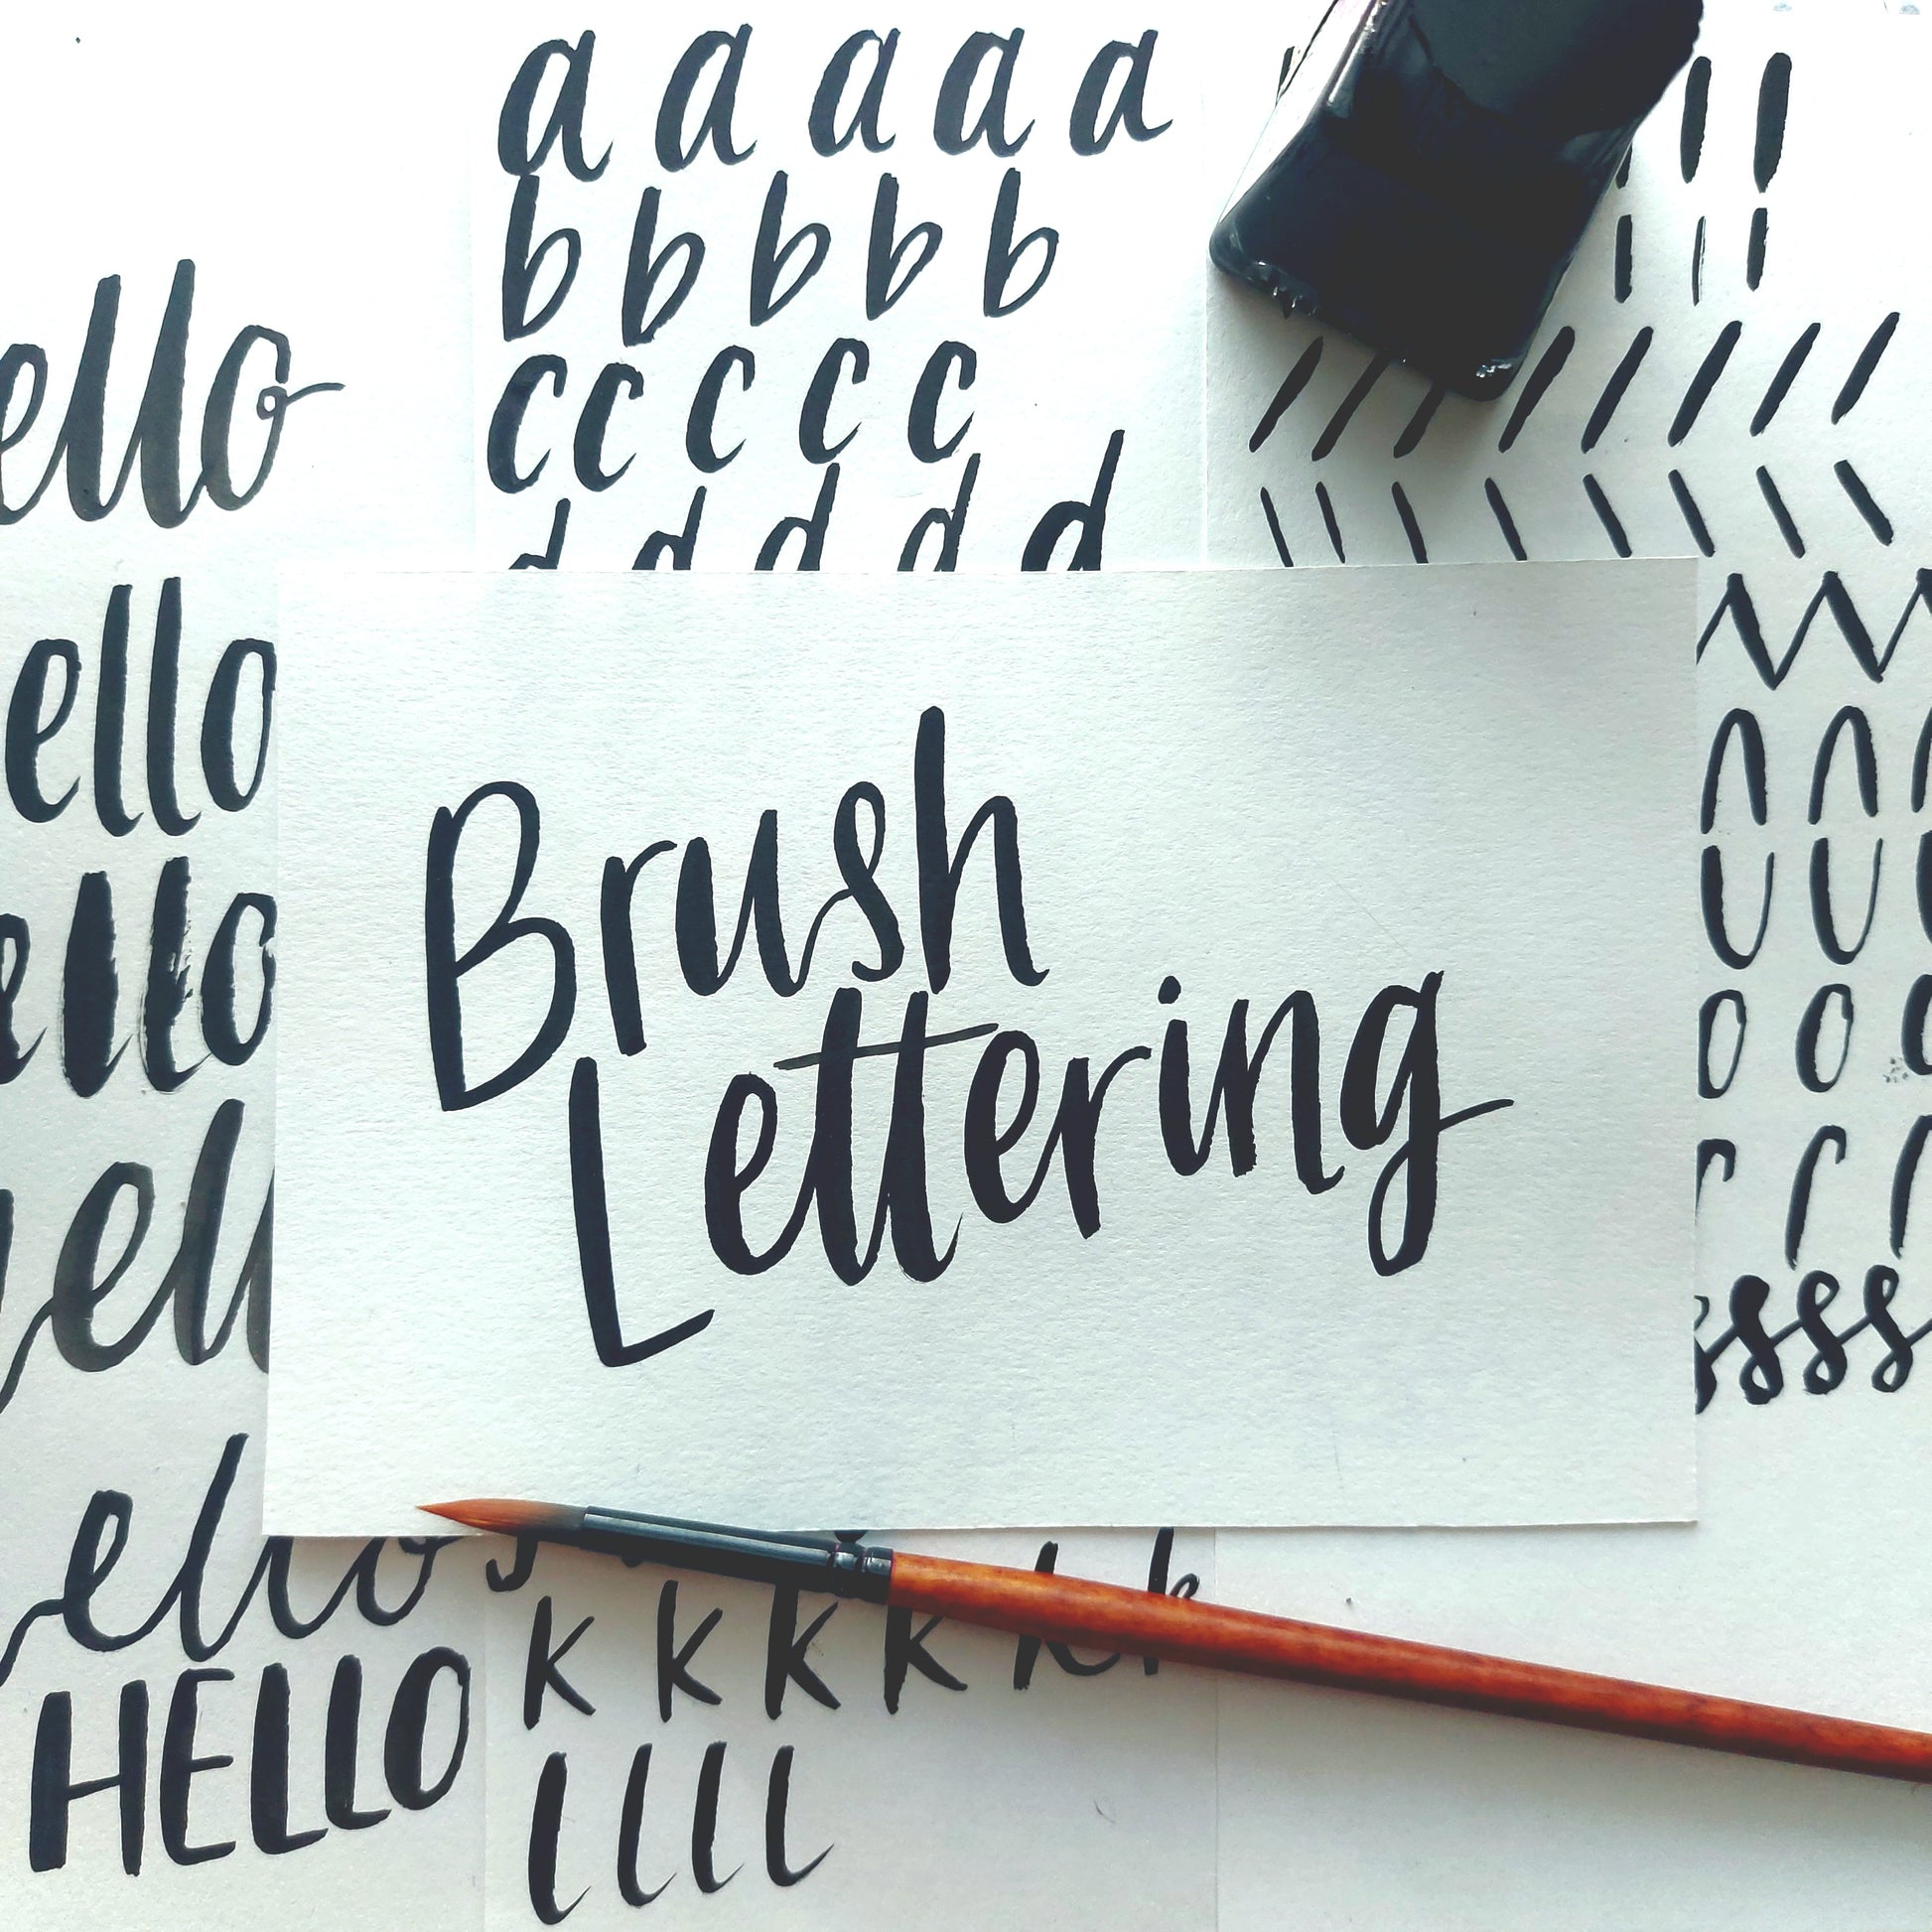 ello
ello
ello
ell
ello
HELLO
a a a a a
b b b b b
c c c c c
d d d d d
Brush
Lettering
k k k k k k
l l l l
s s s s